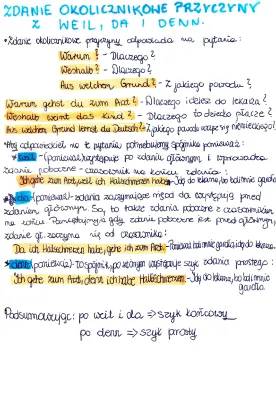 ZDANIE OKOLICZNIKOWE PRZYCZYNY
Z WEIL, DA I DENN.
• Zdanie okolicznikowe przyczyny odpowiada na pytania:
Warum? - Dlaczego?
Weshalb? - Dlaczego?
Aus welchem Grund? - Z jakiego powodu?
Warum gehst du zum Arzt? - Dlaczego idziesz do lekarza?
Weshalb weint das Kind? - Dlaczego to dziecko płacze?
Aus welchem Grund lernst du Deutsch? - Z jakiego powodu uczysz się niemieckiego?
Aby odpowiedzieć na te pytania potrzebujemy spójników ponieważ:
• Weil (ponieważ) występuje po zdaniu głównym, i wprowadza
zdanie poboczne - czasownik na końcu zdania:
Ich gehe zum Arzt, weil ich Halsschmerzen habe - Idę do lekarza, bo boli mnie gardło
• Da (ponieważ) - zdania zaczynające się od da występują przed
zdaniem głównym. Są to także zdania poboczne z czasownikiem
na końcu. gdy zdanie poboczne jest przed głównym,
zdanie gł. zaczyna się od orzeczenia:
Da ich Halsschmerzen habe, gehe ich zum Arzt - Ponieważ boli mnie gardło idę do lekarza.
• denn (ponieważ) - To spójnik, po którym występuje szyk zdania prostego:
Ich gehe zum Arzt, denn ich habe Halsschmerzen - Idę do lekarza, bo boli mnie
gardło
Podsumowując: po weil i da => szyk końcowy
po denn => szyk prosty